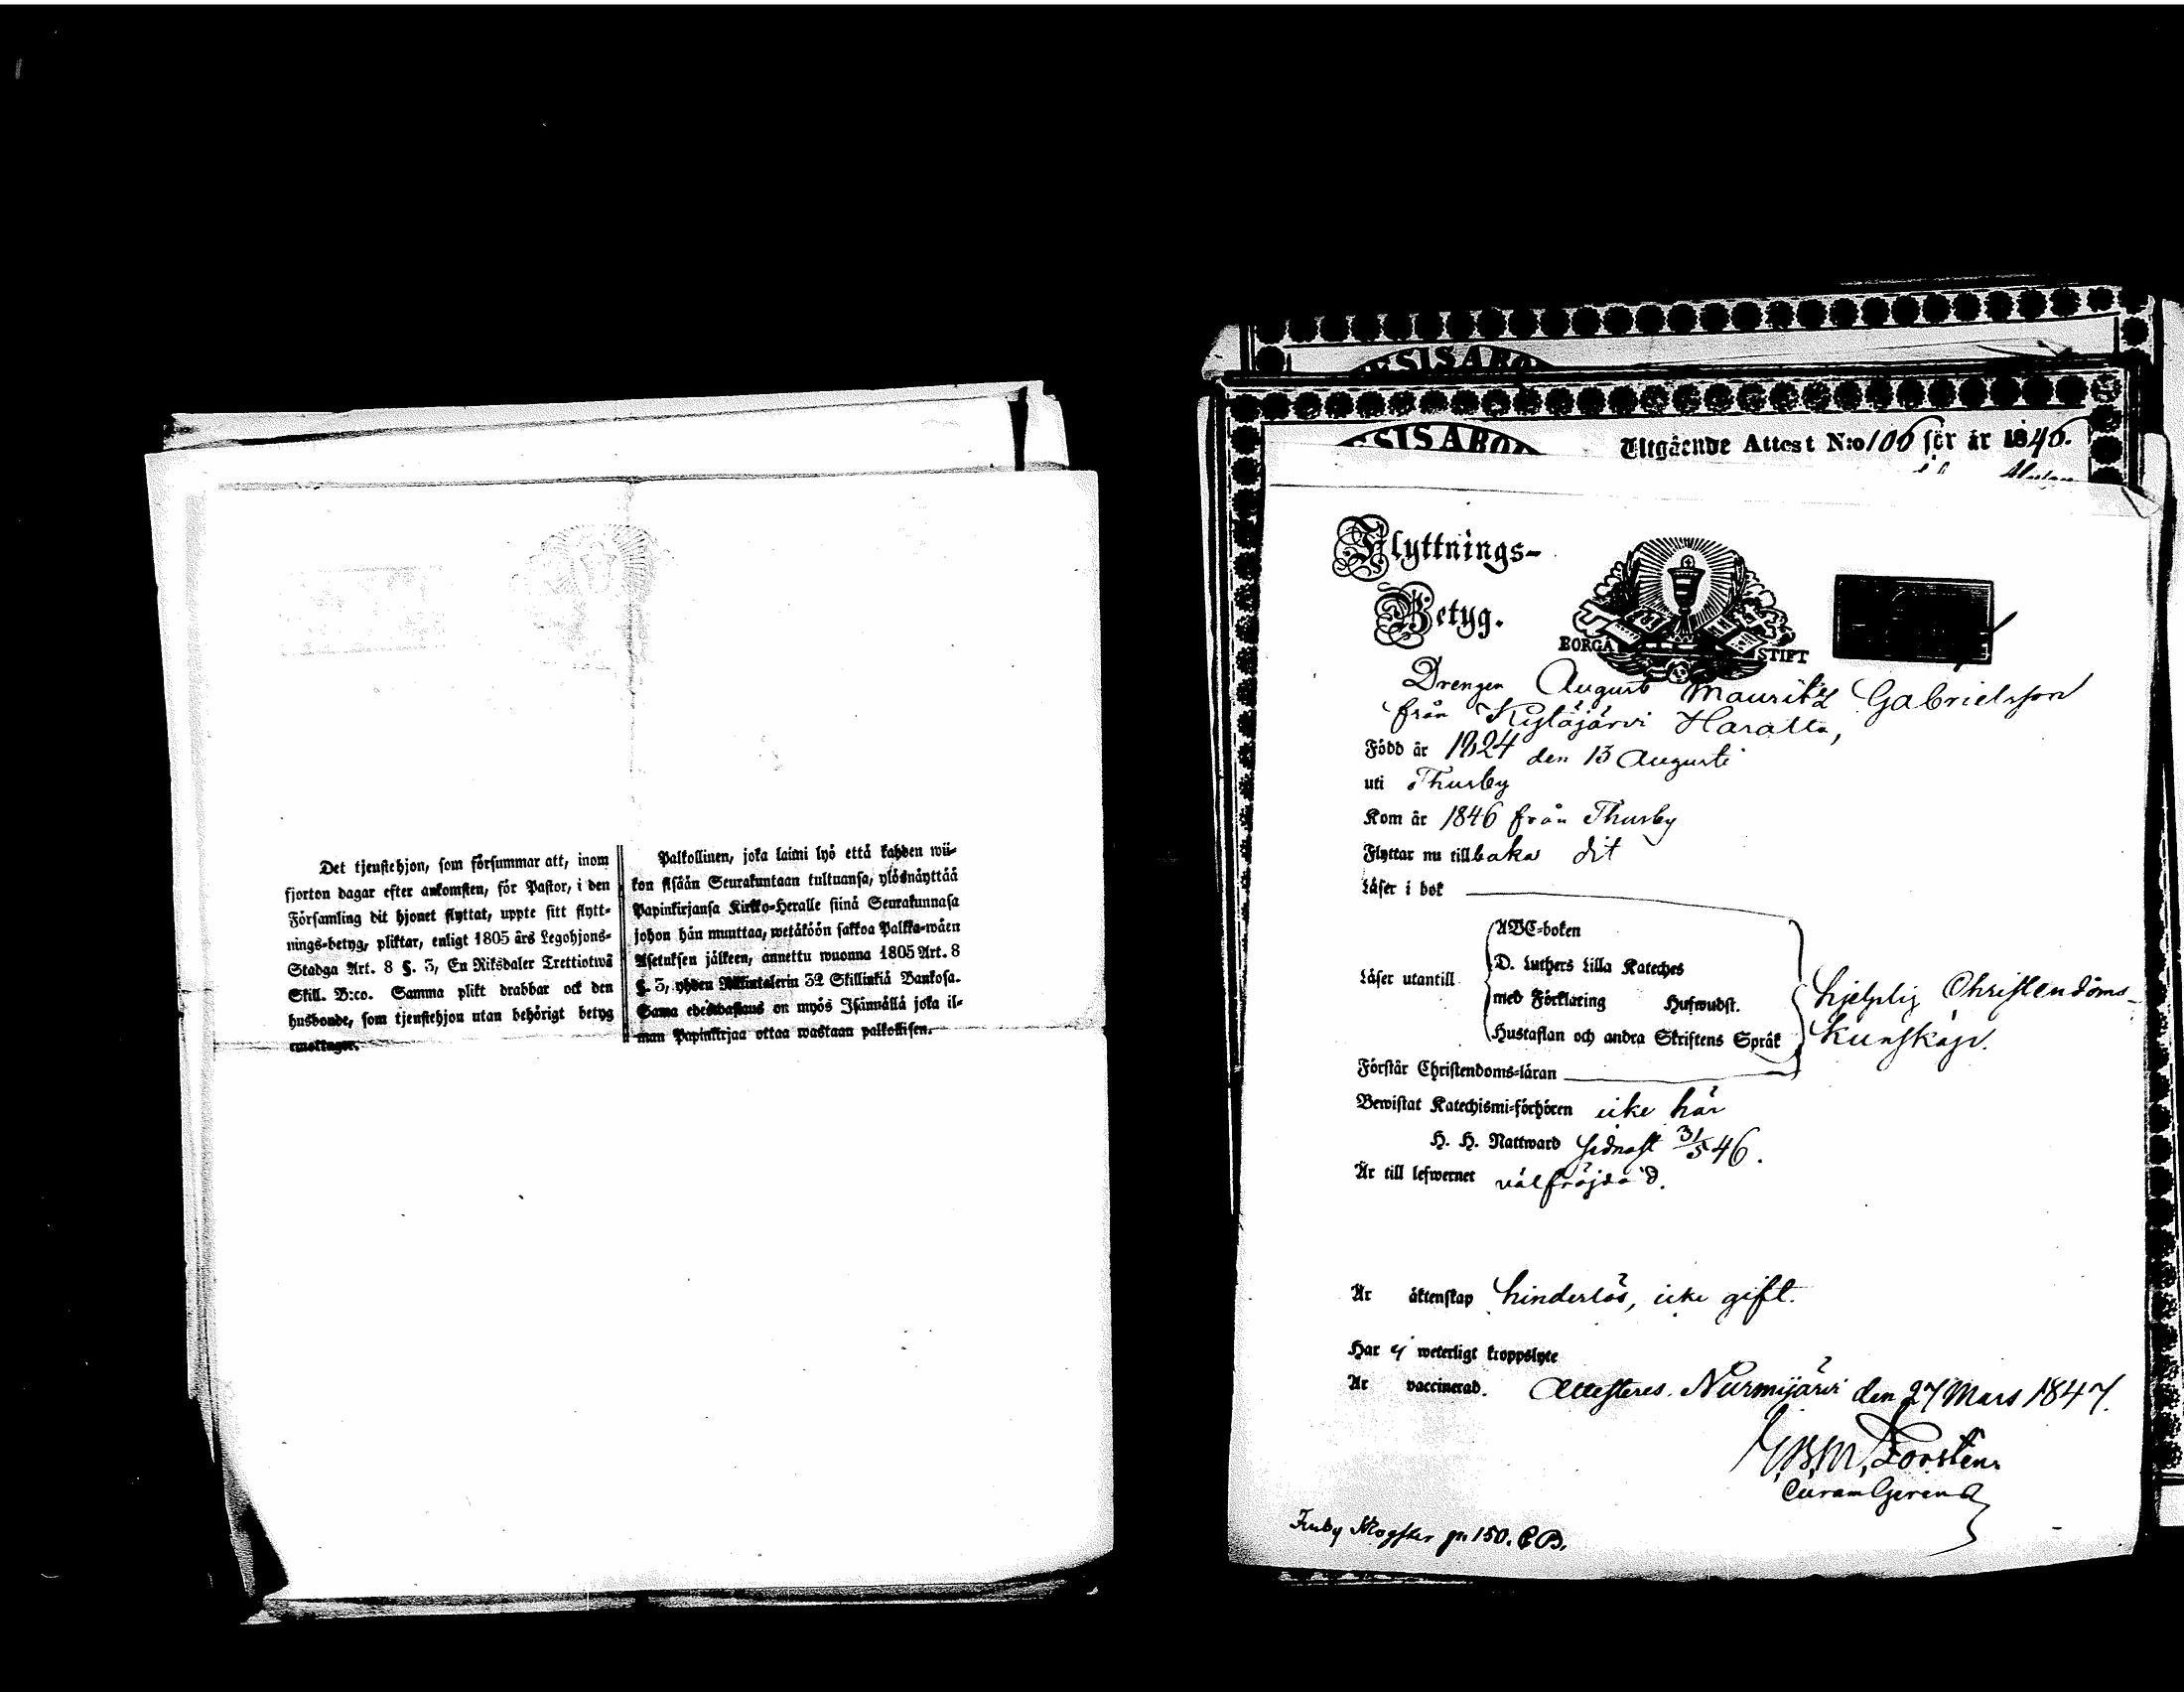 Det tjenstehjon, som försummar att, inom
fjorton dagar efter ankomsten, för Pastor, i den
Församling dit hjonet flyttat, uppte sitt flytt-
nings-betyg, pliktar, enligt 1805 års Legohjons-
Stadga Art. 8 §. 3, En Riksdaler Trettiotwå
Skill. B:co. Samma plikt drabbar ock den
husbonde, som tjenstehjon utan behörigt betyg
emottager.
Palkollinen, joka laimi lyö että kahden wii-
kon sisään Seurakuntaan tultuansa, ylösnäyttää
Papinkirjansa Kirkko-Herralle siinä Seurakunnasa
johon hän muuttaa, wetäköön sakkoa Palkka-wäen
Asetuksen jälkeen, annettu wuonna 1805 Art. 8
§. 3, yhden Riksintalerin 32 Skillinkiä Bankosa.
Sama edeswastaus on myös Isännällä joka il-
man Papinkirjaa ottaa wastaan palkollisen.
Utgående Attest N:o 106 för år 1846.
Flyttnings-
Betyg.
BORGÅ STIFT
Drengen August Mauritz Gabrielsson
från Kyläjärvi Haratta,
Född år 1824 den 13 Augusti
uti Thusby
Kom år 1846 från Thusby
Flyttar nu tillbaka dit
Läser i bok
ABC-boken
D. Luthers Lilla Kateches
Läser utantill
med Förklaring Hufwudst.
Hustaflan och andra Skriftens Språk
hjelplig Christendoms-
kunskap.
Förstår Christendoms-läran
Bewistat Katechismi-förhören icke här
H. H. Nattward sednast 31/5 46.
Är till lefwernet välfräjdad.
Är äktenskap hinderlös, icke gift.
Har ej weterligt kroppslyte
Är vaccinerad. Attesteras. Nurmijärvi den 27 Mars 1847.
Forstén.
Curam Gerens
pn 150. C B.